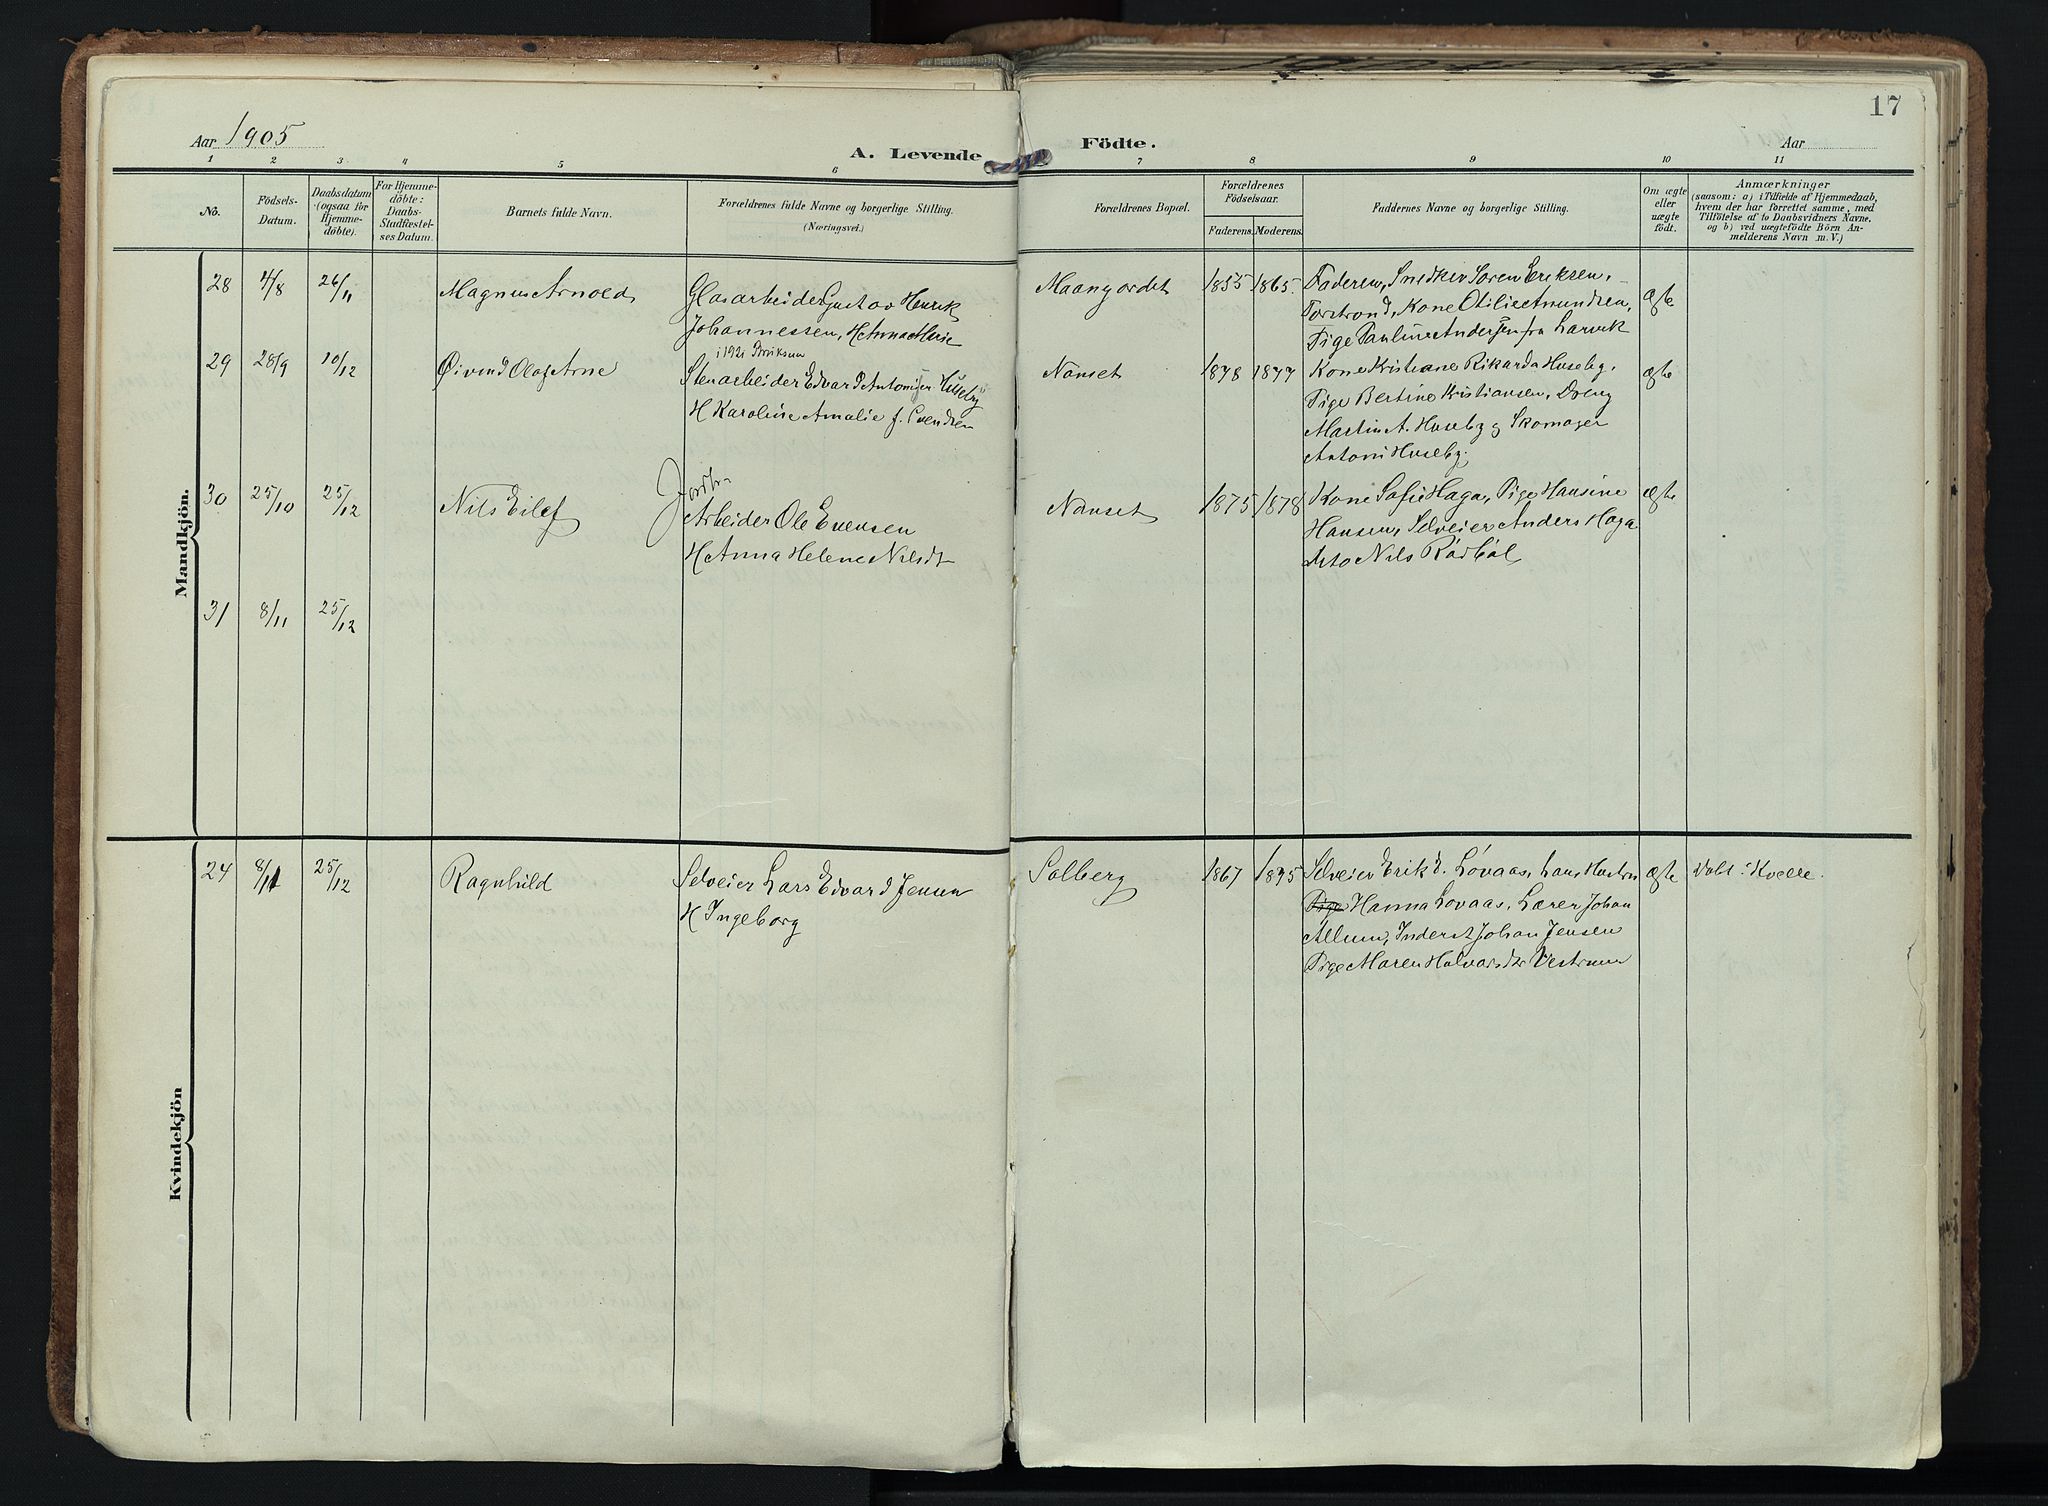 17
Aar 1905
A. Levende
Födte.
Aar
1 2 3 4 5 6 7 8 9 10 11
No.
Födsels-
Datum.
Daabsdatum
(ogsaa for
Hjemme-
döbte).
For Hjemme-
döbte:
Daabs-
Stadfæstel-
ses Datum.
Barnets fulde Navn.
Forældrenes fulde Navne og borgerlige Stilling.
(Næringsvei.)
Forældrenes Bopæl.
Forældrenes
Födselsaar.
Faderens. Moderens.
Faddernes Navne og borgerlige Stilling.
Om ægte
eller
uægte
født.
Anmærkninger
(saasom: a) i Tilfælde af Hjemmedaab,
hvem der har forrettet samme, med
Tilföielse af to Daabsvidners Navne,
og b) ved uægtefödte Börn An-
melderens Navn m. V.)
Mandkjön.
28 4/8 26/11
Magnus Arnold
Glasarbeider Gustav Henrik
Johannessen, H Anna Marie
Maangordet
1855 1865.
Faderen, Snedker Søren Eriksen,
Torstrand, Kone Otilie Amundsen,
Pige Pauline Andersen fra Larvik
ægte
29 28/9 10/12
Øivind Olaf Arne
i 1921
Stenarbeider Edvard Antonisen Huseby
H Karoline Amalie f. Evendsen
Nanset
1878 1877
Kone Kristiane Rikarda Huseby,
Pige Bertine Kristiansen, Dreng
Martin A. Huseby og Skomager
Antoni Huseby.
ægte
30 25/10 25/12
Nils Eilef
Arbeider Ole Evensen
H Anna Helene Nilsdt
Nanset
1875 1878
Kone Sofie Haga, Pige Hansine
Hansen, Selveier Anders Haga
dito Nils Rødbøl
ægte
31 8/11 25/12
Kvindekjön
24 8/11 25/12
Ragnhild
Selveier Lars Edvard Jensen
H Ingeborg
Solberg
1867 1875
Selveier Erik d. Løvaas, hans Hustru
Pige Hanna Løvaas, Lærer Johan
Allum, Inderst Johan Jensen
Pige Maren Halvorsdtr Vestrum
ægte
Døbt i Kvelle.